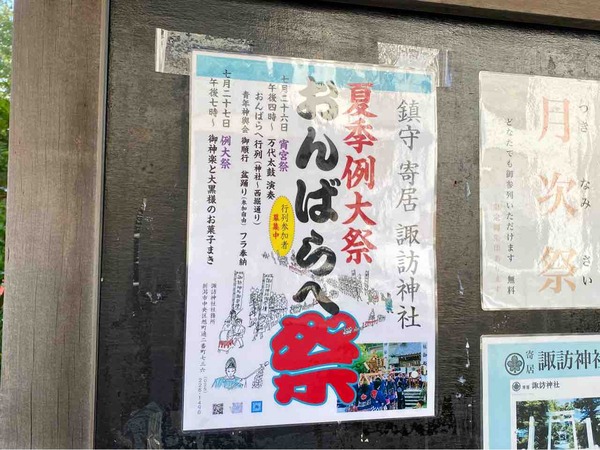 鎮守 寄居 諏訪神社
夏季例大祭
おんばらへ祭
行列参加者
募集中
七月二十六日 宵宮祭
午後四時～ 万代太鼓 演奏
おんばらへ行列(神社～西堀通り)
青年神輿会 御順行 盆踊り(参加自由) フラ奉納
七月二十七日 例大祭
午後七時～ 御神楽と大黒様のお菓子まき
諏訪神社社務所
つき なみ さい
月次祭
どなたでも御参列いただけます 無料
寄居 諏訪神社
諏訪神社